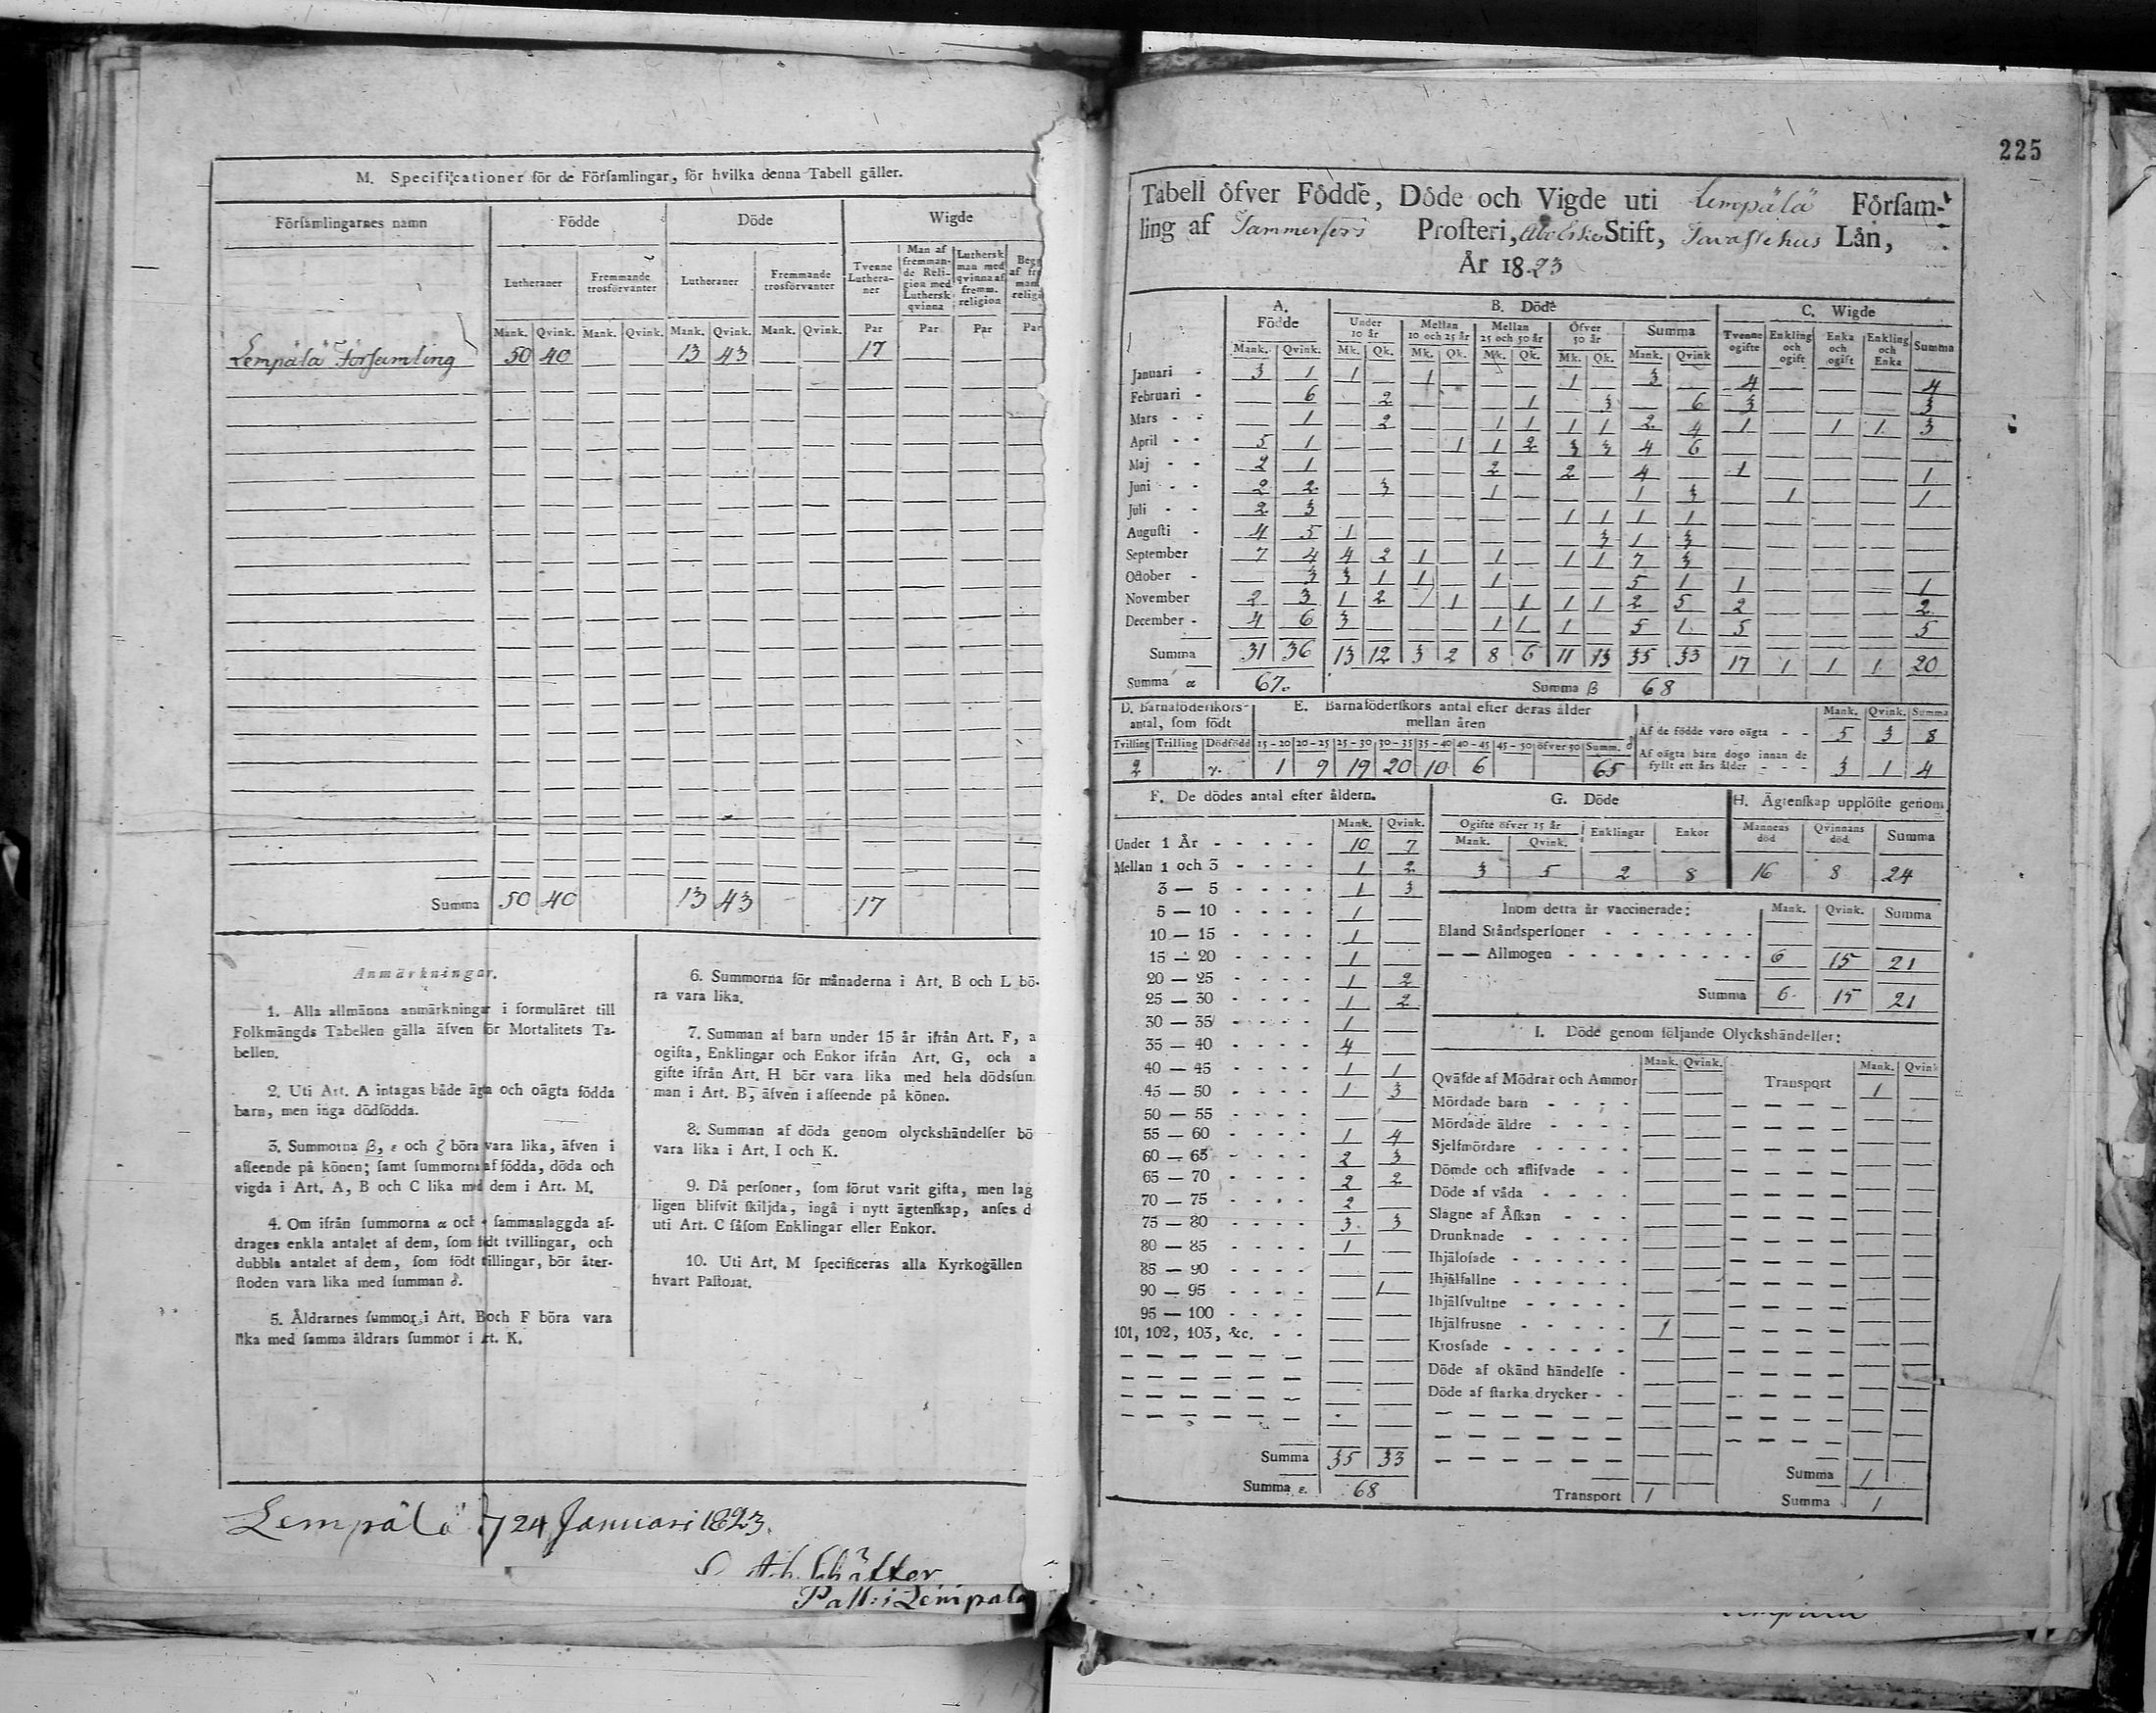 M. Specificationer för de Församlingar, för hvilka denna Tabell gäller.
Församlingarnes namn | Födde | Döde | Wigde
Lutheraner | Fremmande trosförvanter | Lutheraner | Fremmande trosförvanter | Tvenne Lutheraner | Man af fremmande Religion med Luthersk qvinna | Luthersk man med qvinna af fremm. religion
Mank. Qvink. Mank. Qvink. Mank. Qvink. Mank. Qvink. Par Par Par Par
Lempälä Församling 50 40 — — 13 43 — — 17 — —
Summa 50 40 13 43 — — 17
Anmärkningar.
1. Alla allmänna anmärkningar i formuläret till
Folkmängds Tabellen gälla äfven för Mortalitets Ta-
bellen.
2. Uti Art. A intagas både ägta och oägta födda
barn, men inga dödfödda.
3. Summorna β, ε och ζ böra vara lika, äfven i
afseende på könen; samt summorna af födda, döda och
vigda i Art. A, B och C lika med dem i Art. M.
4. Om ifrån summorna α och sammanlaggda af-
drages enkla antalet af dem, som födt tvillingar, och
dubbla antalet af dem, som födt tillingar, bör åter-
stoden vara lika med summan δ.
5. Åldrarnes summor i Art. B och F böra vara
lika med samma åldrars summor i Art. K.
6. Summorna för månaderna i Art. B och L bö-
ra vara lika.
7. Summan af barn under 15 år ifrån Art. F, a
ogifta, Enklingar och Enkor ifrån Art. G, och a
gifte ifrån Art. H bör vara lika med hela dödsfum
man i Art. B, äfven i afseende på könen.
8. Summan af döda genom olyckshändelser bö
vara lika i Art. I och K.
9. Då personer, som förut varit gifta, men lag
ligen blifvit skiljda, ingå i nytt ägtenskap, anses d
uti Art. C såsom Enklingar eller Enkor.
10. Uti Art. M specificeras alla Kyrkogällen
hvart Pastorat.
Lempälä 24 Januari 1823.
Past: i Lempälä
225
Tabell öfver Födde, Döde och Vigde uti Lempälä Församling
ling af Tammerfors Prosteri, Åbo Stift, Tavastehus Län,
År 1823
A. Födde | B. Döde | C. Wigde
Under 10 år | Mellan 10 och 25 år | Mellan 25 och 50 år | Öfver 50 år | Summa | Tvenne ogifte | Enkling och ogift | Enka och ogift | Enkling och Enka | Summa
Mank. Qvink. Mk. Qk. Mk. Qk. Mk. Qk. Mk. Qk. Mank. Qvink
Januari - 3 1 1 — 1 — — — 1 — 3 — 4 — — — 4
Februari - — 6 — 2 — — — 1 — 3 — 6 3 — — — 3
Mars - - — 1 — 2 — — 1 1 1 1 2 4 1 — 1 1 3
April - - 5 1 — — — 1 1 2 3 3 4 6 — — — — —
Maj - - 2 1 — — — — 2 — 2 — 4 — 1 — — — 1
Juni - - 2 2 — 3 — — 1 — — — 1 3 — 1 — — 1
Juli - - 2 3 — — — — — — 1 1 1 1 — — — — —
Augusti - 4 5 1 — — — — — — 3 1 3 — — — — —
September 7 4 4 2 1 — 1 — 1 1 7 3 — — — — —
October - — 3 3 1 1 — 1 — — — 5 1 1 — — — 1
November 2 3 1 2 — 1 — 1 1 1 2 5 2 — — — 2
December - 4 6 3 — — — 1 1 1 — 5 1 5 — — — 5
Summa 31 36 13 12 3 2 8 6 11 13 35 33 17 1 1 1 20
Summa α 67. Summa β 68
D. Barnaföderskors antal, som födt
E. Barnaföderskors antal efter deras ålder mellan åren
Tvilling Trilling Dödfödd 15-20 20-25 25-30 30-35 35-40 40-45 45-50 öfver 50 Summ. δ
2 γ. 1 9 19 20 10 6 65
Mank. Qvink. Summa
Af de födde voro oägta - - 5 3 8
Af oägta barn dogo innan de
fyllt ett års ålder - - - 3 1 4
F. De dödes antal efter åldern.
Mank. Qvink.
Under 1 År - - - - - 10 7
Mellan 1 och 3 - - - - 1 2
3 — 5 - - - - 1 3
5 — 10 - - - - 1 —
10 — 15 - - - - 1 —
15 — 20 - - - - 1 —
20 — 25 - - - - 1 2
25 — 30 - - - - 1 2
30 — 35 - - - - 1 —
35 — 40 - - - - 4 —
40 — 45 - - - - 1 1
45 — 50 - - - - 1 3
50 — 55 - - - - — —
55 — 60 - - - - 1 4
60 — 65 - - - - 2 3
65 — 70 - - - - 2 2
70 — 75 - - - - 2 —
75 — 80 - - - - 3 3
80 — 85 - - - - 1 —
85 — 90 - - - - — —
90 — 95 - - - - — 1
95 — 100 - - - - — —
101, 102, 103, &c. - - — —
Summa 35 33
Summa ε. 68
G. Döde
Ogifte öfver 15 år | Enklingar | Enkor
Mank. Qvink.
3 5 2 8
H. Ägtenskap upplöste genom
Mannens död | Qvinnans död | Summa
16 8 24
Inom detta år vaccinerade: Mank. Qvink. Summa
Bland Ståndspersoner - - - - - - - — — —
— — Allmogen - - - - - - - - - 6 15 21
Summa 6. 15 21
I. Döde genom följande Olyckshändelser:
Mank. Qvink. Mank. Qvink
Qväfde af Mödrar och Ammor — — Transport 1 —
Mördade barn - - - -
Mördade äldre - - - -
Sjelfmördare - - - - -
Dömde och aflifvade - -
Döde af våda - - - -
Slagne af Åskan - - -
Drunknade - - - - -
Ihjälosade - - - - - -
Ihjälfallne - - - - - -
Ihjälsvultne - - - - -
Ihjälfrusne - - - - - 1 —
Krossade - - - - - -
Döde af okänd händelse -
Döde af starka drycker - -
Summa 1
Transport 1 Summa 1